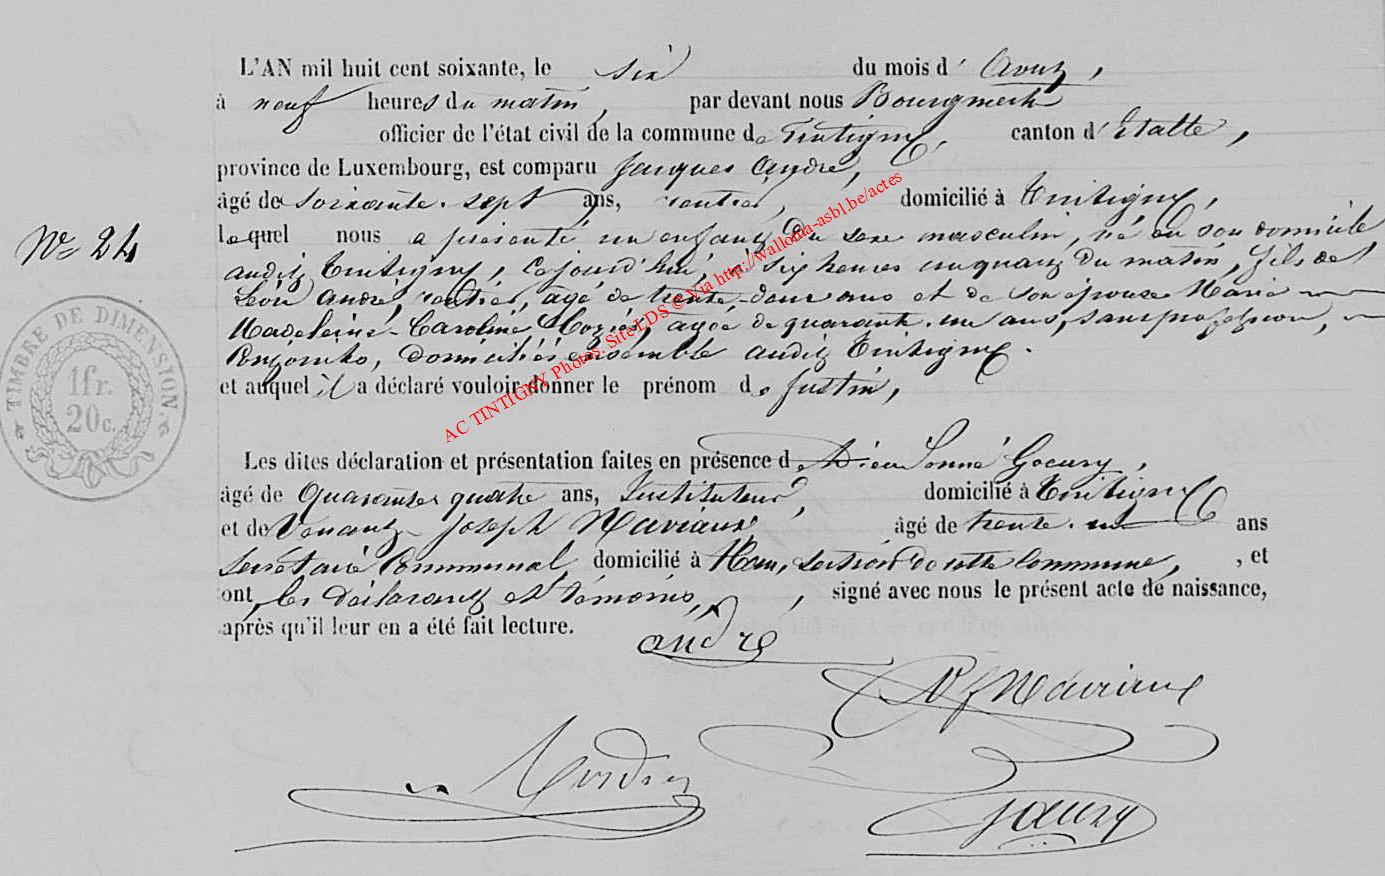 L'AN mil huit cent soixante, le six du mois d' Aout,
à neuf heures du matin, par devant nous Bourgmestre
officier de l'état civil de la commune de Tintigny, canton d' Etalle,
province de Luxembourg, est comparu Jacques André,
âgé de soixante-sept ans, rentier, domicilié à Tintigny,
lequel nous a présenté un enfant du sexe masculin, né en son domicile
N° 24
audit Tintigny, cejourd'hui, à six heures un quart du matin, fils de
Léon André, rentier, âgé de trente-deux ans et de son épouse Marie
Madeleine-Caroline, âgée de quarante-un ans, sans profession,
domiciliés ensemble audit Tintigny.
et auquel il a déclaré vouloir donner le prénom de Justin,
TIMBRE DE DIMENSION.
1fr.
20c.
AC TINTIGNY Photos, Site LDS © Via http://wallonia-asbl.be/actes
Les dites déclaration et présentation faites en présence de Dieudonné Goeury,
âgé de quarante quatre ans, Instituteur, domicilié à Tintigny
et de Venant-Joseph Mariaux âgé de trente-un ans
Secrétaire Communal, domicilié à Han, section de cette Commune, , et
ont, les déclarant et témoins, , signé avec nous le présent acte de naissance,
après qu'il leur en a été fait lecture.
andré
Mauriaux
Goeury